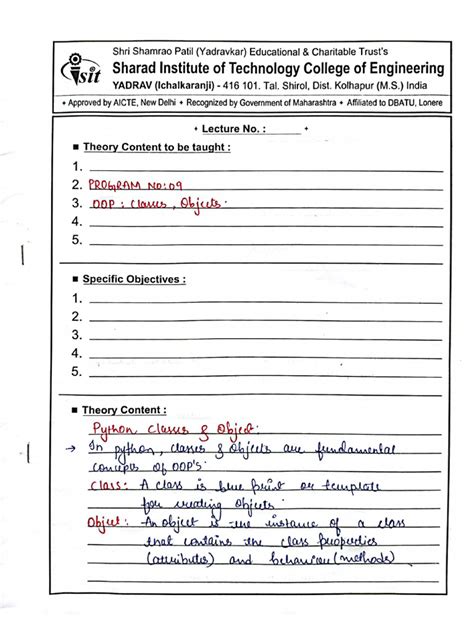 Shri Shamrao Patil (Yadravkar) Educational & Charitable Trust's
Sharad Institute of Technology College of Engineering
YADRAV (Ichalkaranji) - 416 101. Tal. Shirol, Dist. Kolhapur (M.S.) India
sit
+ Approved by AICTE, New Delhi + Recognized by Government of Maharashtra + Affiliated to DBATU, Lonere
+ Lecture No. : ______ +
■ Theory Content to be taught :
1.
2. PROGRAM NO:09
3. OOP : Classes, Objects.
4.
5.
■ Specific Objectives :
1.
2.
3.
4.
5.
■ Theory Content :
Python Classes & Object:
→ In python, classes & Objects are fundamental
concepts of OOP's.
Class: A class is blue print or template
for creating Objects.
Object: An object is the instance of a class
that contains the class properties
(attributes) and behaviour (methods)